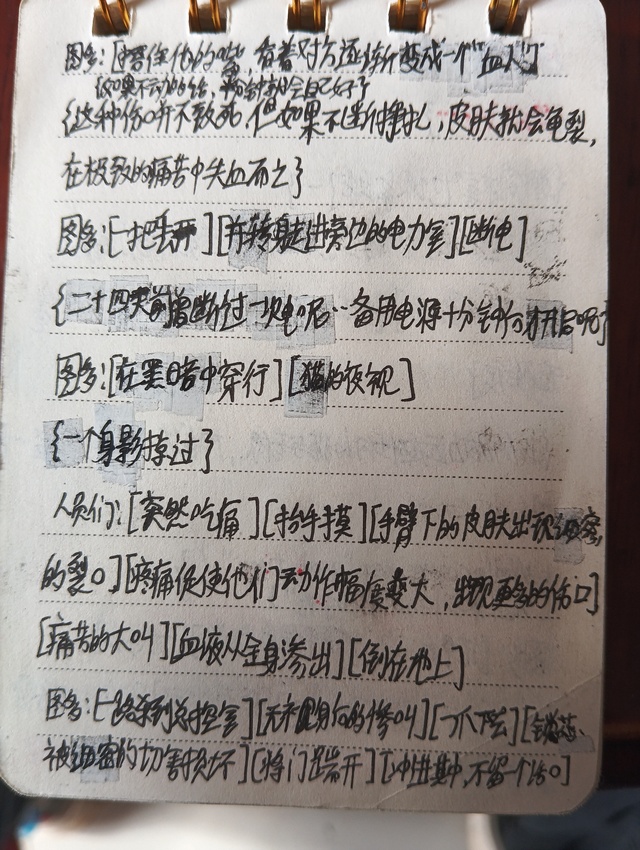 图多:[捂住他的嘴,看着对方逐渐变成一个"血人"]
(如果不动的话,粉针就会自己好了
{这种伤口并不致死,但如果不断挣扎,皮肤就会龟裂,
在极致的痛苦中失血而亡}
图多:[一把丢开][并转身走进旁边的电力室][断电]
{二十四天前曾断过一次电呢…备用电源十分钟后才开启呢}
图多:[在黑暗中穿行][猫的夜视]
{一个身影掠过}
人员们:[突然吃痛][抬手摸][手臂下的皮肤出现细密
的裂口][疼痛促使他们动作幅度变大,出现更多的伤口]
[痛苦的大叫][血液从全身渗出][倒在地上]
图多:[一路杀到总控室][无视身后的惨叫][一爪下去][锁芯
被细密的切割损坏][将门踹开][冲进其中,不留一个活口]